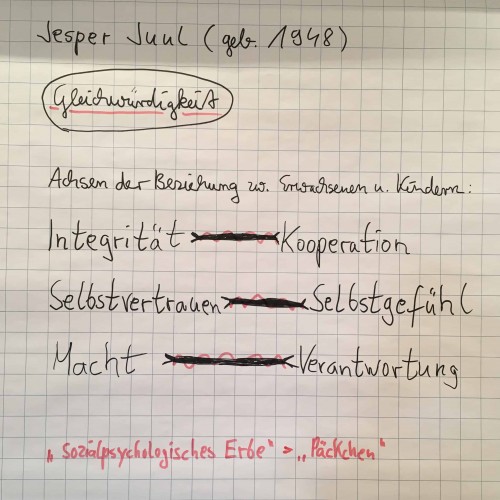 Jesper Juul (geb. 1948)
Gleichwürdigkeit
Achsen der Beziehung zw. Erwachsenen u. Kindern:
Integrität Kooperation
Selbstvertrauen Selbstgefühl
Macht Verantwortung
„Sozialpsychologisches Erbe" > „Päckchen"